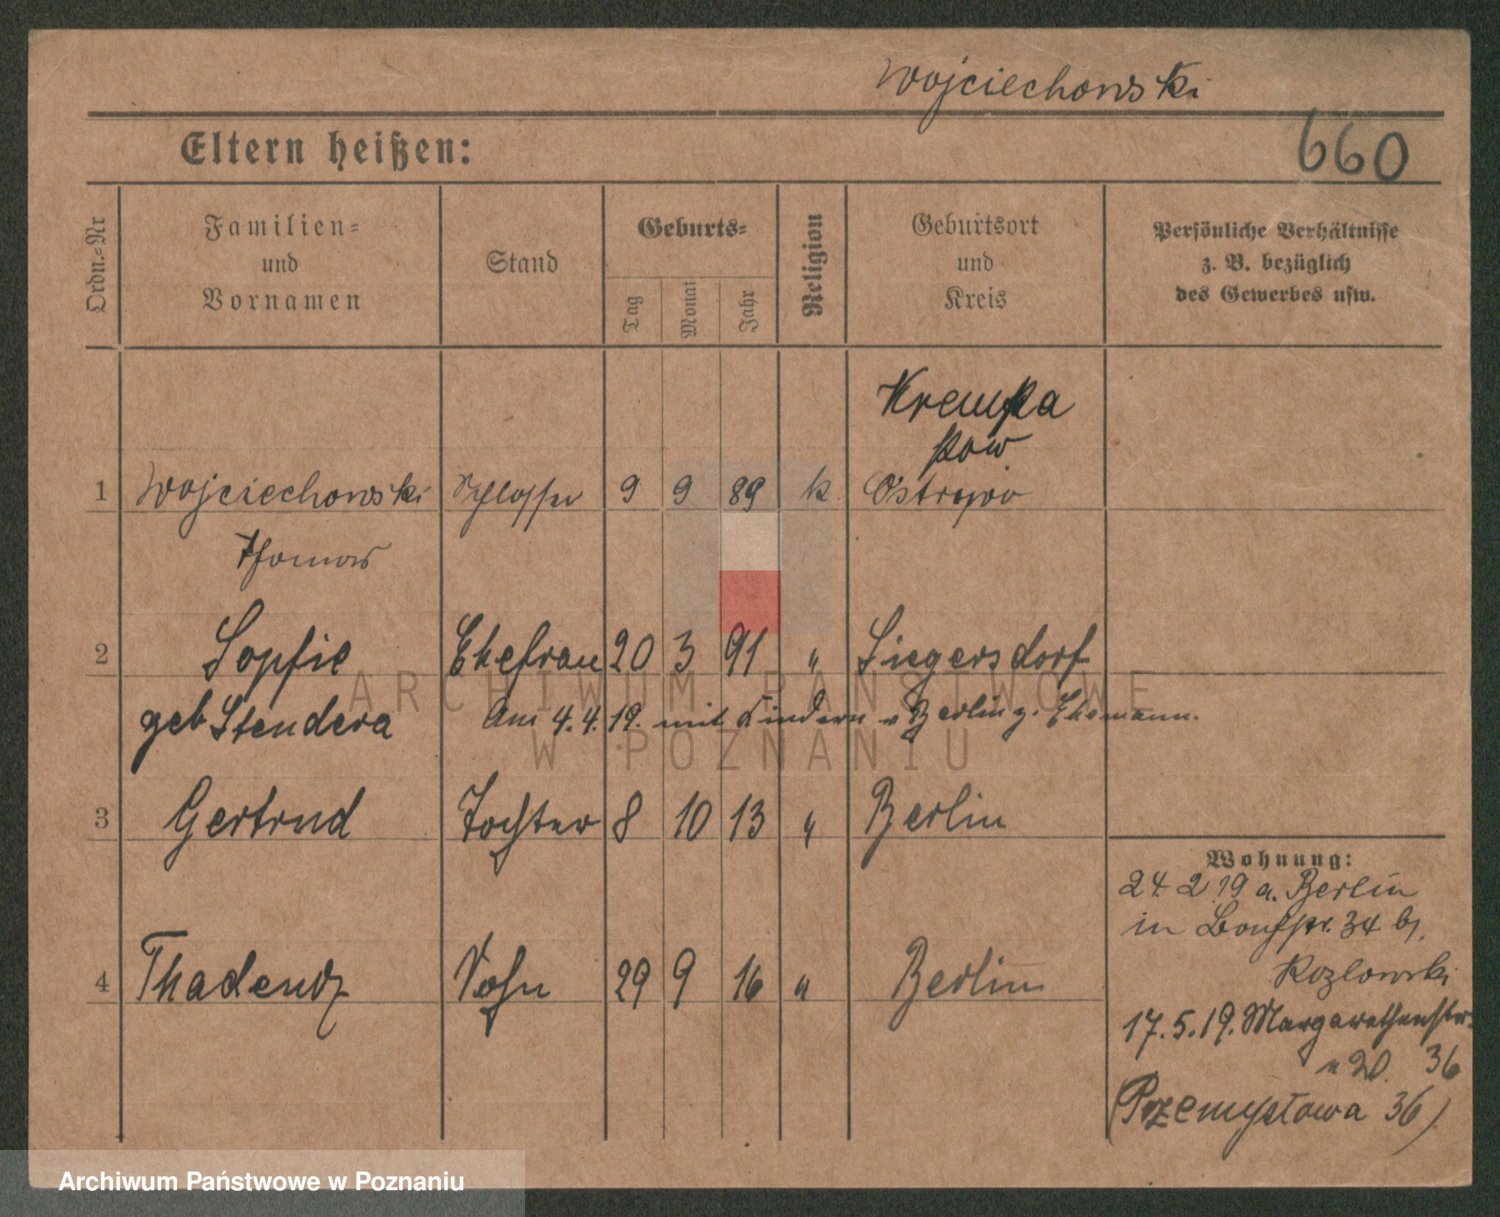 Wojciechowski
Eltern heißen:
660
Ordn.-Nr
Familien-
und
Vornamen
Stand
Geburts-
Tag
Monat
Jahr
Religion
Geburtsort
und
Kreis
Persönliche Verhältnisse
z. B. bezüglich
des Gewerbes usw.
Krempa
pow
1 Wojciechowski Schlosser 9 9 89 k. Ostrowo
Thomas
2 Sophie Ehefrau 20 3 91 " Siegersdorf
geb Stendera Am 4.4.19. mit Kindern v Berlin z. Ehemann.
3 Gertrud Tochter 8 10 13 " Berlin
4 Thadeusz Sohn 29 9 16 " Berlin
Wohnung:
24 2 19 a. Berlin
in 34 bj.
Kozlowski
17.5.19. Margarethenstr.
36
(Przemysłowa 36)
ARCHIWUM PAŃSTWOWE
W POZNANIU
Archiwum Państwowe w Poznaniu